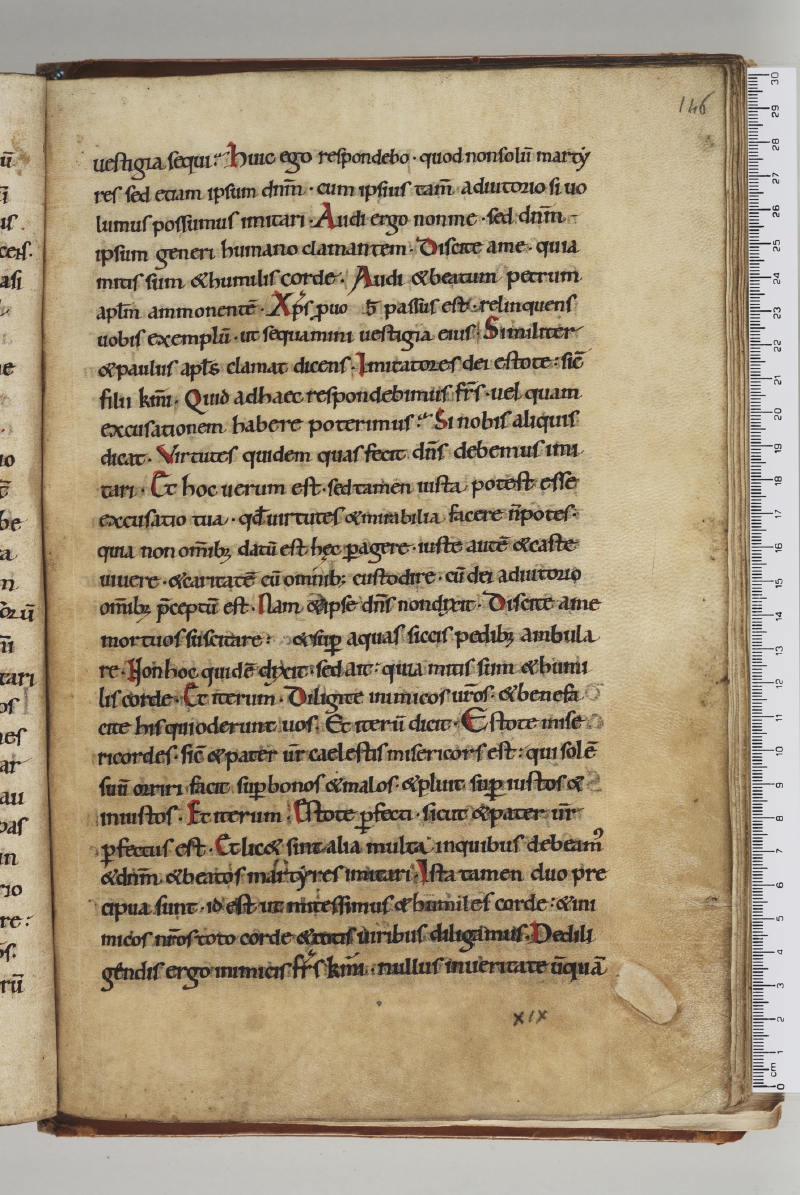 146
uestigia sequi? Huic ego respondebo · quod non solū marty
res sed etiam ipsum dn̄m · cum ipsius tam̄ adiutorio si uo
lumus possumus imitari · Audi ergo non me · sed dn̄m
ipsum generi humano clamantem · Discite a me · quia
mitis sum & humilis corde · Audi & beatum petrum
apłm ammonentē · Xp̄s ꝓ uo b; passus est · relinquens
uobis exemplū · ut sequamini uestigia eius · Similiter
& paulus apłs clamat dicens · Imitatores dei estote : sic̄
filii km̄i · Quid ad haec respondebimus fr̄s · uel quam
excusationem habere poterimus? Si nobis aliquis
dicat · Virtutes quidem quas fecit dn̄s debemus imi
tari · Et hoc uerum est · sed tamen iusta potest esse
excusatio tua · qđ uirtutes & mirabilia facere n̄ potes ·
quia non om̄ib; datū est hęc ꝑagere · iuste autē & caste
uiuere · & caritatē cū omnib; custodire · cū dei adiutorio
om̄ib; p̄ceptū est · Nam & ipse dn̄s non dixit · Discite a me
mortuos suscitare : & suꝑ aquas siccis pedib; ambula
re · Non hoc quidē dixit · sed ait : quia mitis sum & humi
lis corde · Et iterum · Diligite inimicos ur̄os · & benefa
cite his qui oderunt uos · Et iterū dicit · Estote mise
ricordes · sic̄ & pater ur̄ caelestis misericors est : qui solē
suū oriri facit suꝑ bonos & malos · & pluit suꝑ iustos &
iniustos · Et iterum · Estote ꝑfecti · sicut & pater ur̄
ꝑfectus est · Et lic& sint alia multa in quibus debeam᾿
& dn̄m & beatos martyres imitari · Ista tamen duo pre
cipua sunt · id est ut mitessimus & humiles corde : & ini
micos nr̄os toto corde & totis uiribus diligamus · De dili
gendis ergo inimicis fr̄s km̄i · nullus in ueritate ūquā
xix